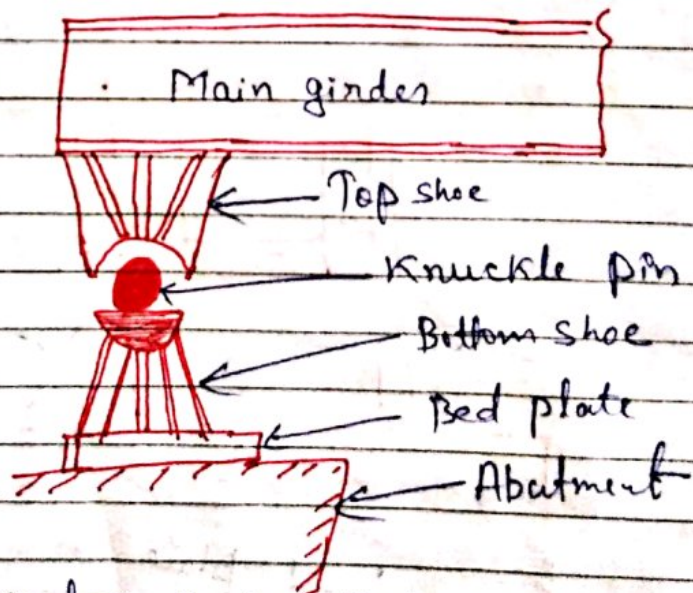 Main girder
Top shoe
Knuckle pin
Bottom shoe
Bed plate
Abutment